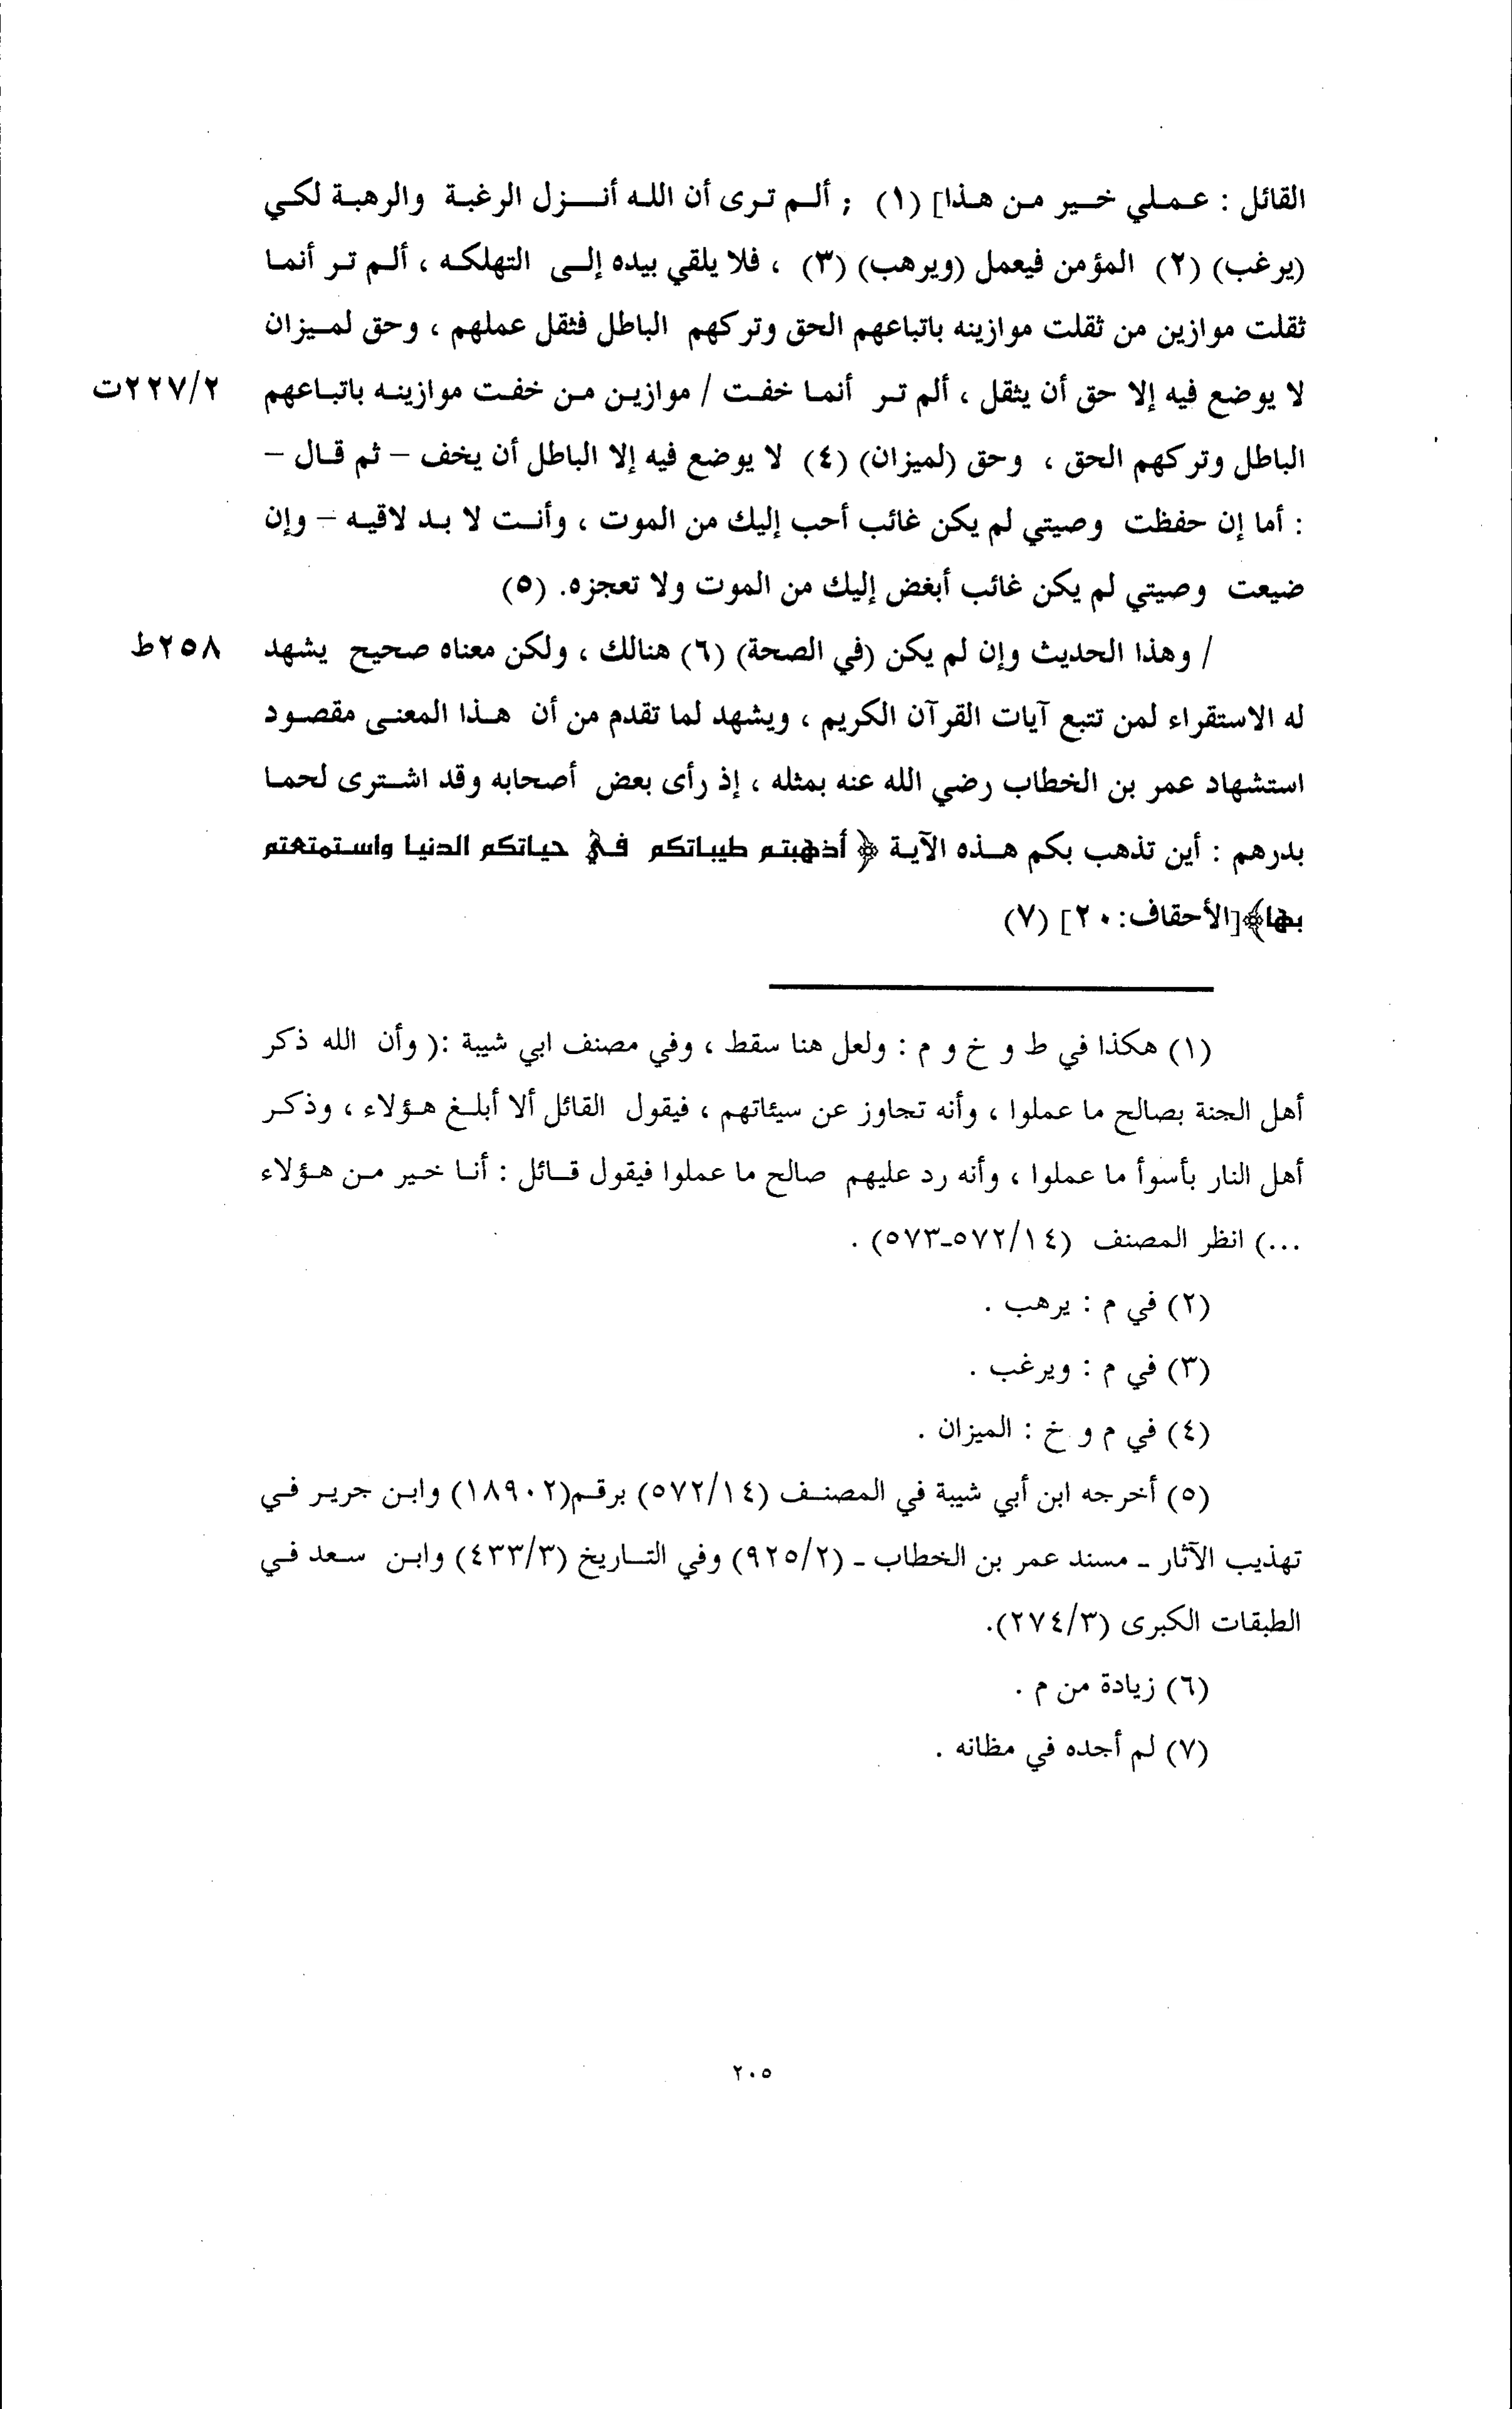 القائل : عملي خير من هذا] (١) ; ألم ترى أن الله أنزل الرغبة والرهبة لكي
(يرغب) (٢) المؤمن فيعمل (ويرهب) (٣) ، فلا يلقي بيده إلى التهلكه ، ألم تر أنما
ثقلت موازين من ثقلت موازينه باتباعهم الحق وتركهم الباطل فثقل عملهم ، وحق لميزان
لا يوضع فيه إلا حق أن يثقل ، ألم تر أنما خفت / موازين من خفت موازينه باتباعهم ٢٢٧/٢ت
الباطل وتركهم الحق ، وحق (لميزان) (٤) لا يوضع فيه إلا الباطل أن يخف – ثم قال –
: أما إن حفظت وصيتي لم يكن غائب أحب إليك من الموت ، وأنت لا بد لاقيه – وإن
ضيعت وصيتي لم يكن غائب أبغض إليك من الموت ولا تعجزه. (٥)
/ وهذا الحديث وإن لم يكن (في الصحة) (٦) هنالك ، ولكن معناه صحيح يشهد ٢٥٨ط
له الاستقراء لمن تتبع آيات القرآن الكريم ، ويشهد لما تقدم من أن هذا المعنى مقصود
استشهاد عمر بن الخطاب رضي الله عنه بمثله ، إذ رأى بعض أصحابه وقد اشترى لحما
بدرهم : أين تذهب بكم هذه الآية ﴿ أذهبتم طيباتكم في حياتكم الدنيا واستمتعتم
بها﴾[الأحقاف:٢٠] (٧)
(١) هكذا في ط و خ و م : ولعل هنا سقط ، وفي مصنف ابي شيبة :( وأن الله ذكر
أهل الجنة بصالح ما عملوا ، وأنه تجاوز عن سيئاتهم ، فيقول القائل ألا أبلغ هؤلاء ، وذكر
أهل النار بأسوأ ما عملوا ، وأنه رد عليهم صالح ما عملوا فيقول قائل : أنا خير من هؤلاء
...) انظر المصنف (٥٧٢/١٤-٥٧٣) .
(٢) في م : يرهب .
(٣) في م : ويرغب .
(٤) في م و خ : الميزان .
(٥) أخرجه ابن أبي شيبة في المصنف (٥٧٢/١٤) برقم(١٨٩٠٢) وابن جرير في
تهذيب الآثار - مسند عمر بن الخطاب - (٩٢٥/٢) وفي التاريخ (٤٣٣/٣) وابن سعد في
الطبقات الكبرى (٢٧٤/٣).
(٦) زيادة من م .
(٧) لم أجده في مظانه .
٢٠٥